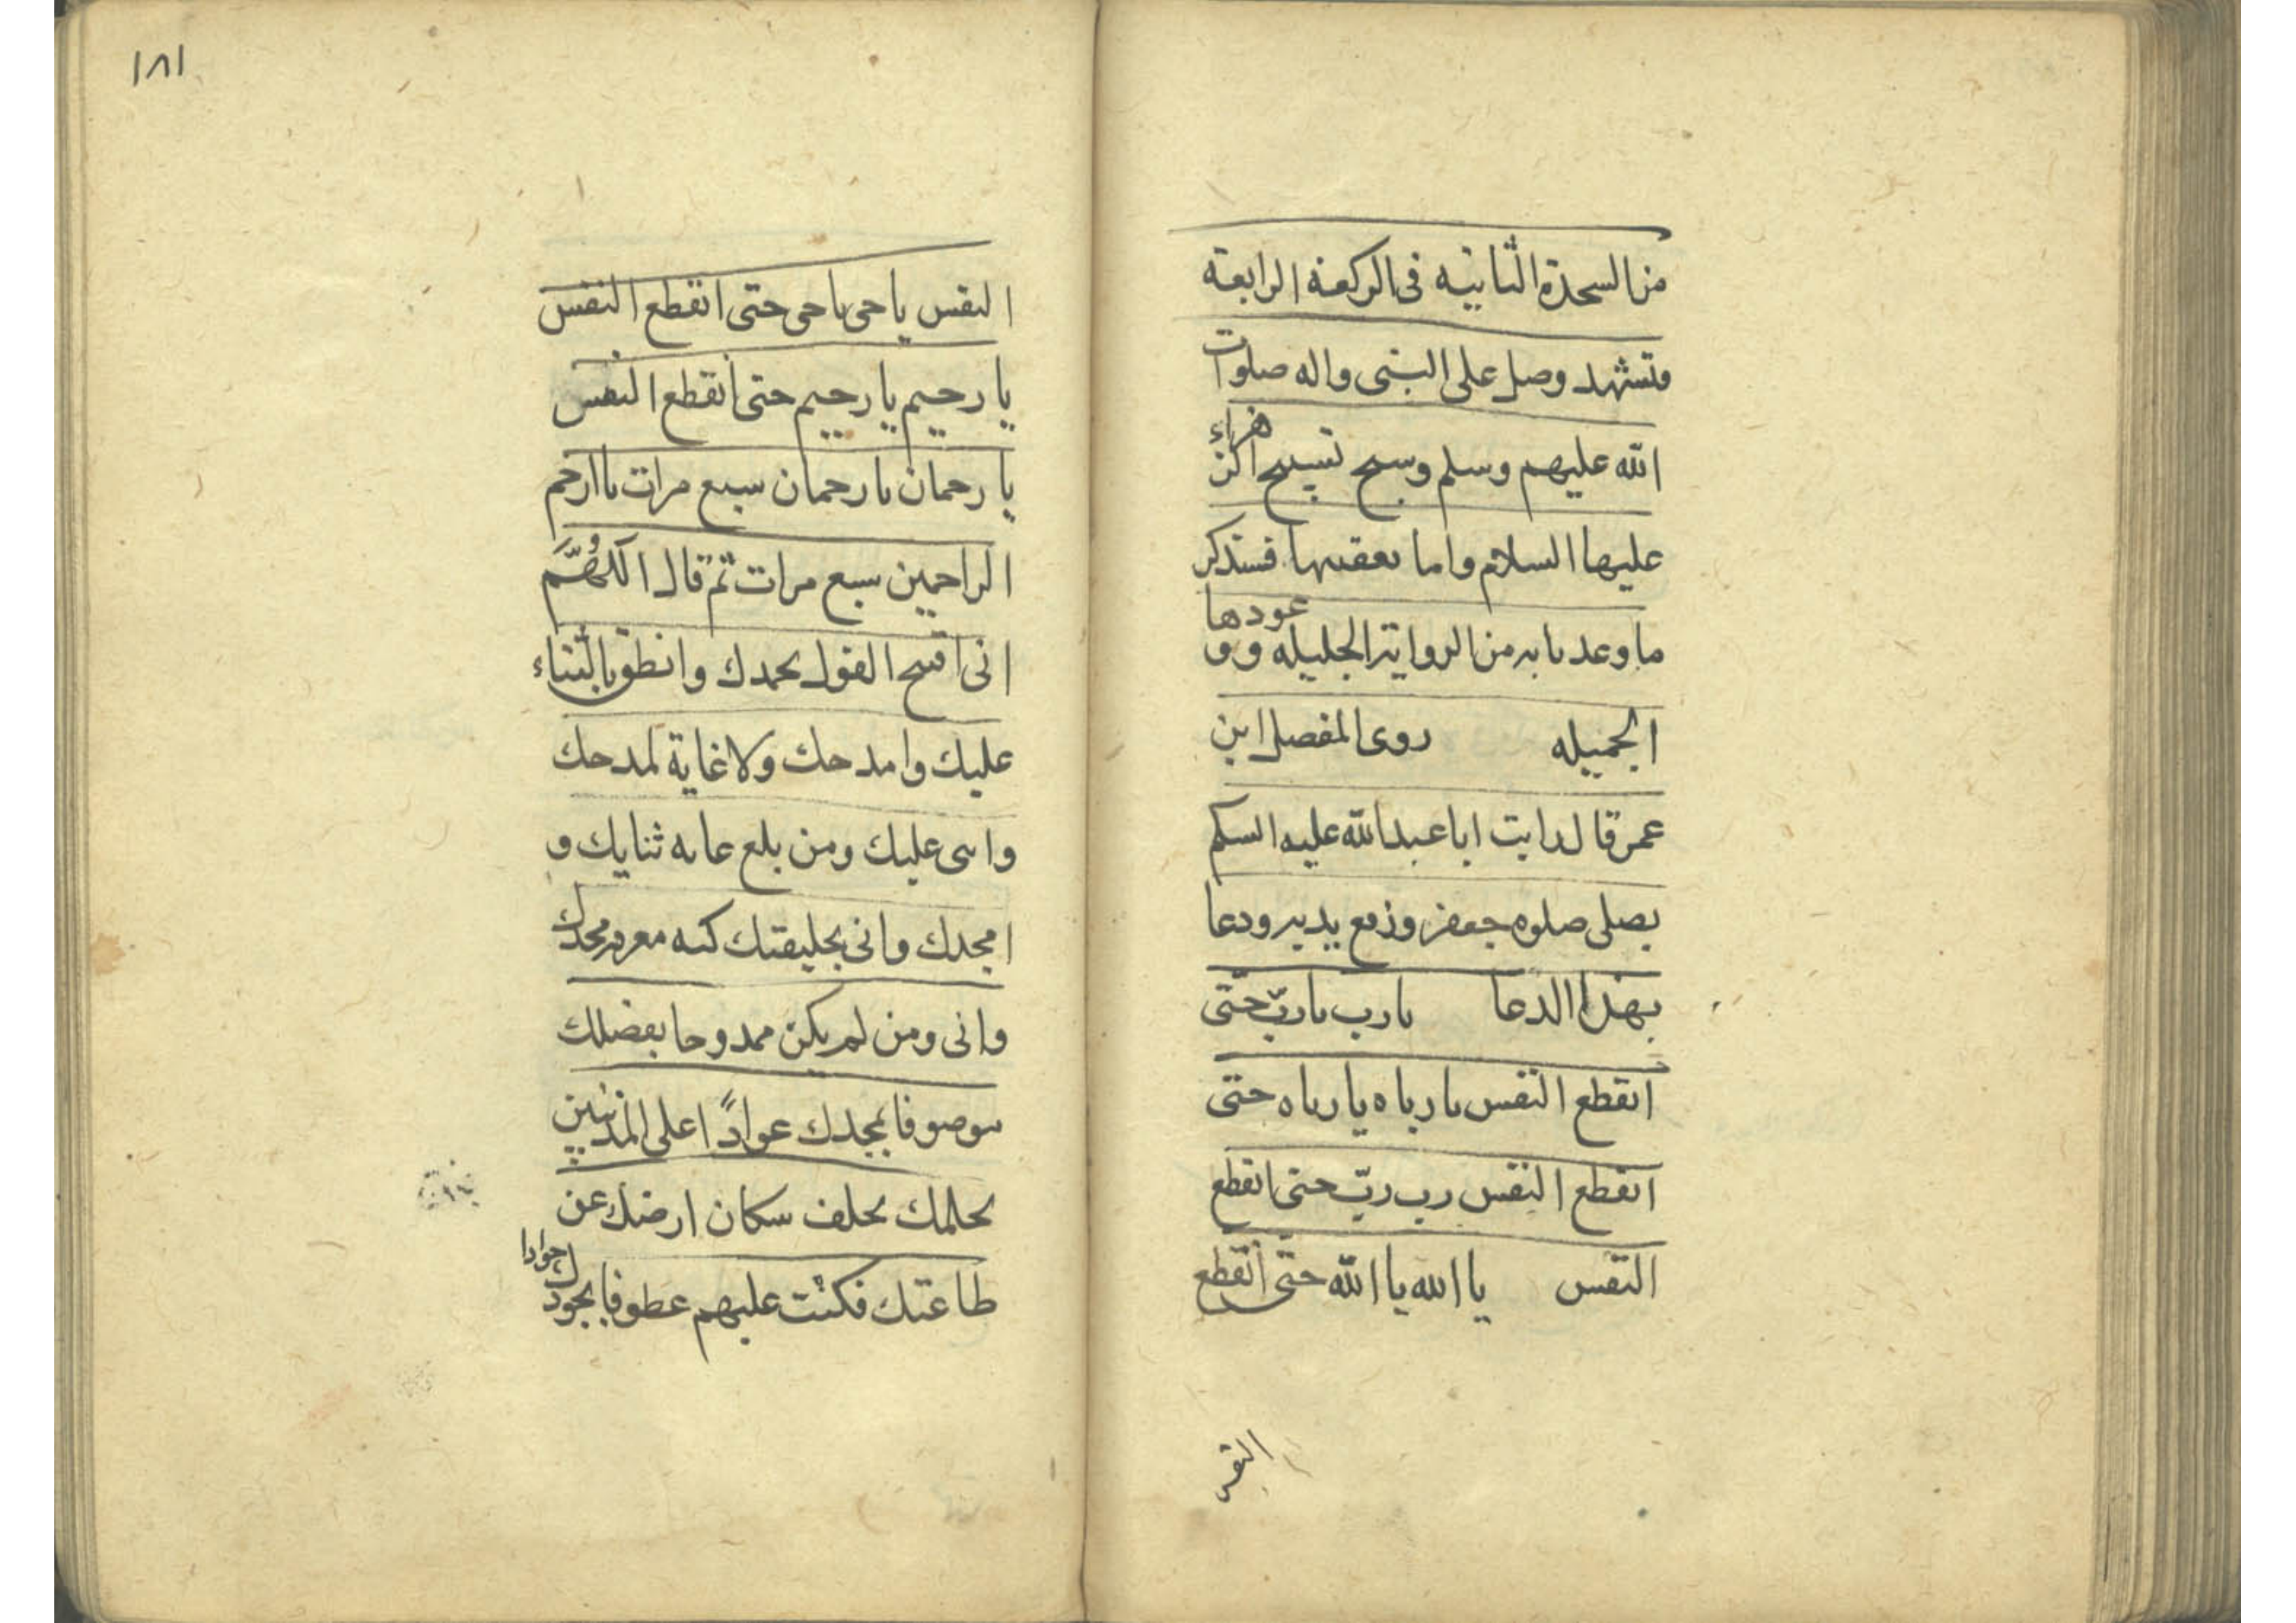 من السجدة الثانيه فى الركعه الرابعة
وتشهد وصل على النبى واله صلوات
الله عليهم وسلم وسبح تسبيح الزهراء
عليها السلام واما تعقيبها فستذكر
ما وعدنا به من الرواية الجليله و وعودها
الجميله روى المفضل ابن
عمر قال رايت ابا عبد الله عليه السلم
يصلى صلوه جعفر ورفع يديه ودعا
بهذا الدعا يا رب يا ربّ حتّى
انقطع النفس يا رباه يا رباه حتى
انقطع النفس رب ربّ حتى انقطع
النفس يا الله يا الله حتى انقطع
النفس
١٨١
النفس يا حى يا حى حتى انقطع النفس
يا رحيم يا رحيم حتى انقطع النفس
يا رحمان يا رحمان سبع مرات يا ارحم
الراحمين سبع مرات ثم قال اللهُمَّ
انى افتح القول بحمدك وانطق بالثناء
عليك وامدحك ولا غاية لمدحك
واثنى عليك ومن بلغ غايه ثنايك و
امجدك وانى بخليقتك كنه معرفه مجدك
وانى ومن لم يكن ممدوحا بفضلك
موصوفا بمجدك عوادًا على المذنبين
بحلمك تخلف سكان ارضك عن
طاعتك فكنت عليهم عطوفا بجودك جوادا